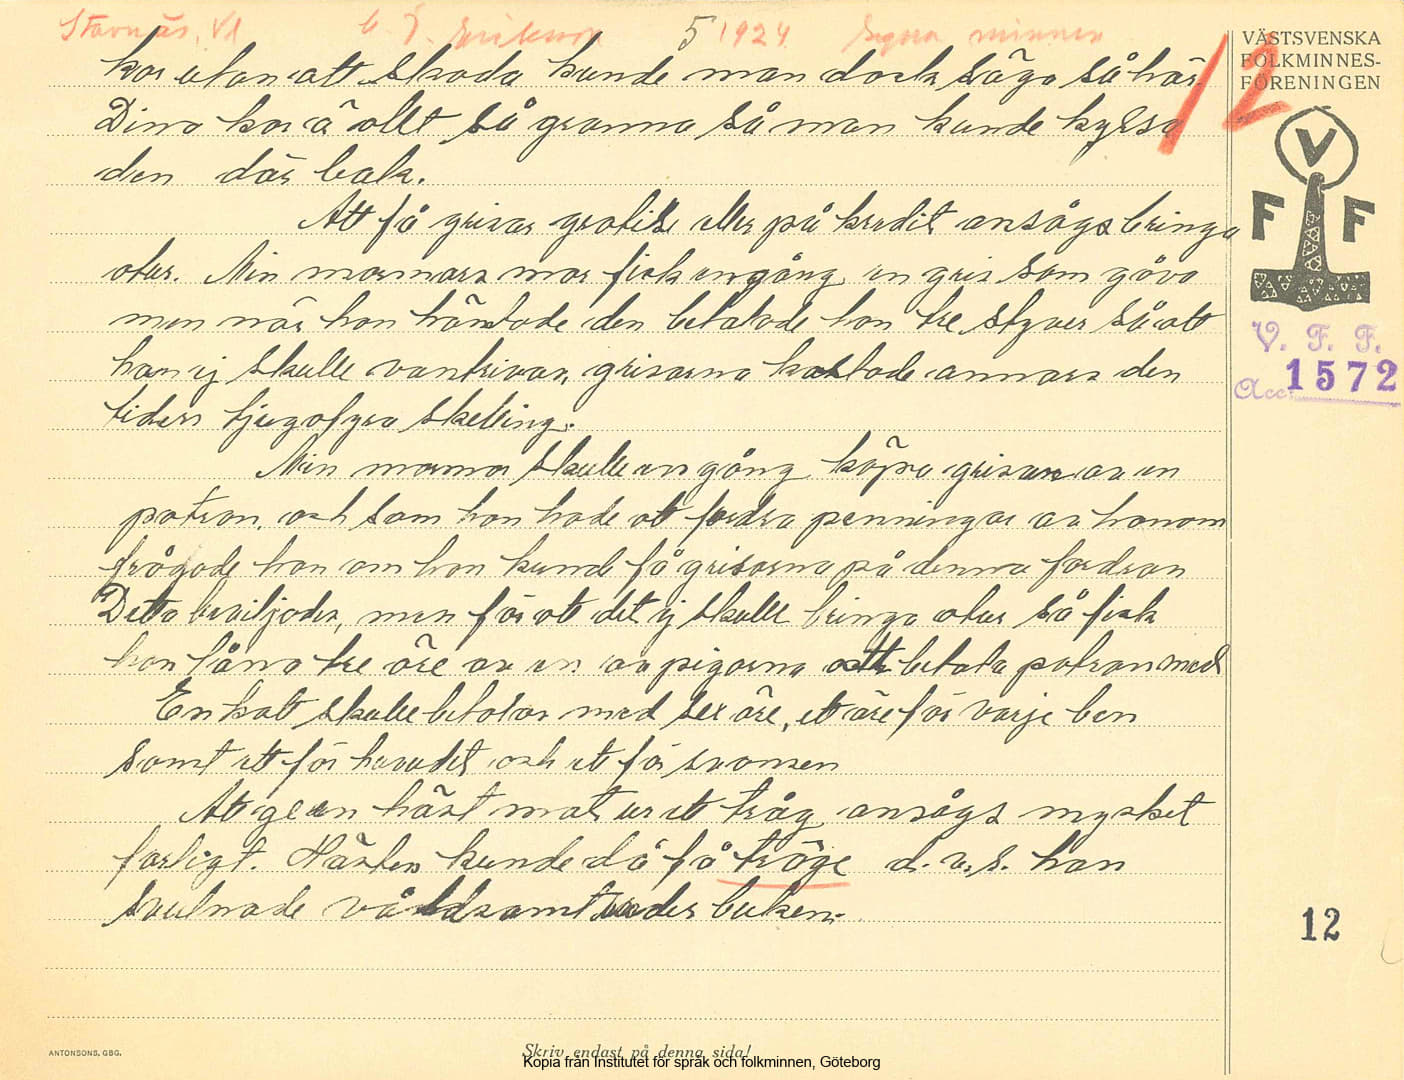 Stavnäs, Vl C. J. Eriksson 5 1924 Egna minnen
VÄSTSVENSKA
FOLKMINNES-
FÖRENINGEN
12
kor utan att skada kunde man dock säga så här
Dina kor ä allt så granna så man kunde kyssa
den där bak.
Att få grisar gratis eller på kredit ansågs bringa
otur. Min mormors mor fick engång en gris som gåva
men när hon hämtade den betalade hon tre styver så att
han ej skulle vantrivas, grisarna kostade annars den
tiden tjugofyra skelling.
Min mormor skulle en gång köpa grisar av en
patron, och som hon hade att fordra penningar av honom
frågade hon om hon kunde få grisarna på denna fordran
Detta beviljades, men för att det ej skulle bringa otur så fick
hon låna tre öre av en av pigorna att betala patron med
En katt skulle betalas med sex öre, ett öre för varje ben
samt ett för huvudet och ett för svansen
Att ge en häst mat ur ett tråg ansågs mycket
farligt. Hästen kunde då få tröge d. v. s. han
svullnade våldsamt under buken.
V
F F
V. F. F.
Acc. 1572
12
ANTONSONS, GBG.
Skriv endast på denna sida!
Kopia från Institutet för språk och folkminnen, Göteborg